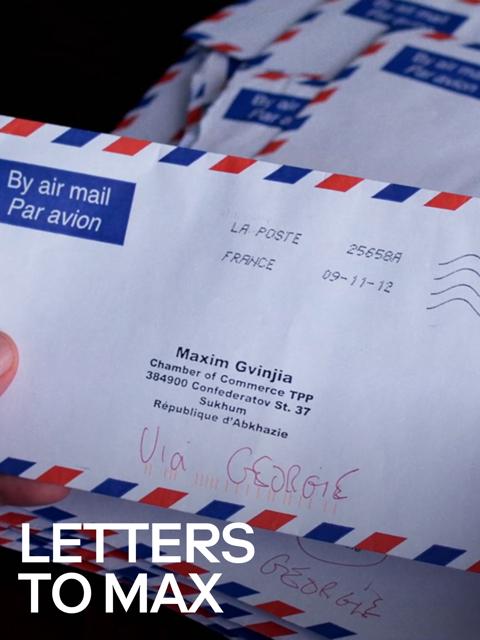 By air mail
Par avion
By air
Par a
By air m
Par avion
LA POSTE 25658A
FRANCE 09-11-12
Maxim Gvinjia
Chamber of Commerce TPP
384900 Confederatov St. 37
Sukhum
République d'Abkhazie
Via GEORGIE
GEORGIE
LETTERS
TO MAX